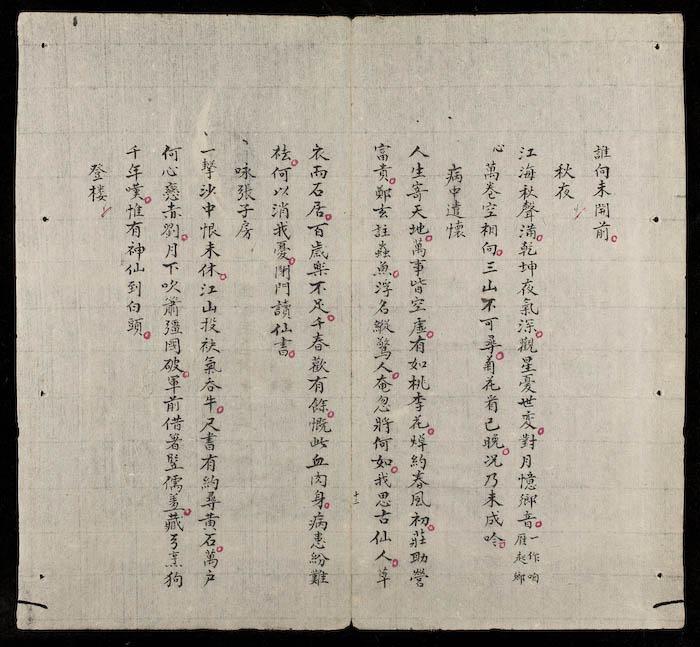 誰向未開前
秋夜
江海秋聲滿乾坤夜氣深觀星憂世变對月憶鄉音一作咱雁起鄉
心萬卷空相向三山不可尋菊花看已晚况乃未成吟
病中遣懷
人生寄天地萬事皆空虛有如桃李花焯約春風初莊助營
富貴鄭玄註蟲魚浮名縱驚人奄忽將何如我思古仙人草
十二
衣而石居百歲樂不足千春歡有餘慨此血肉身病患紛難
祛何以消我憂閉門讀仙書
咏張子房
一擊沙中恨未休江山投袂氣吞牛尺書有約尋黃石萬户
何心戀赤劉月下吹簫強國破軍前借箸豎儒羞藏弓烹狗
千年嘆惟有神仙到白頭
登楼